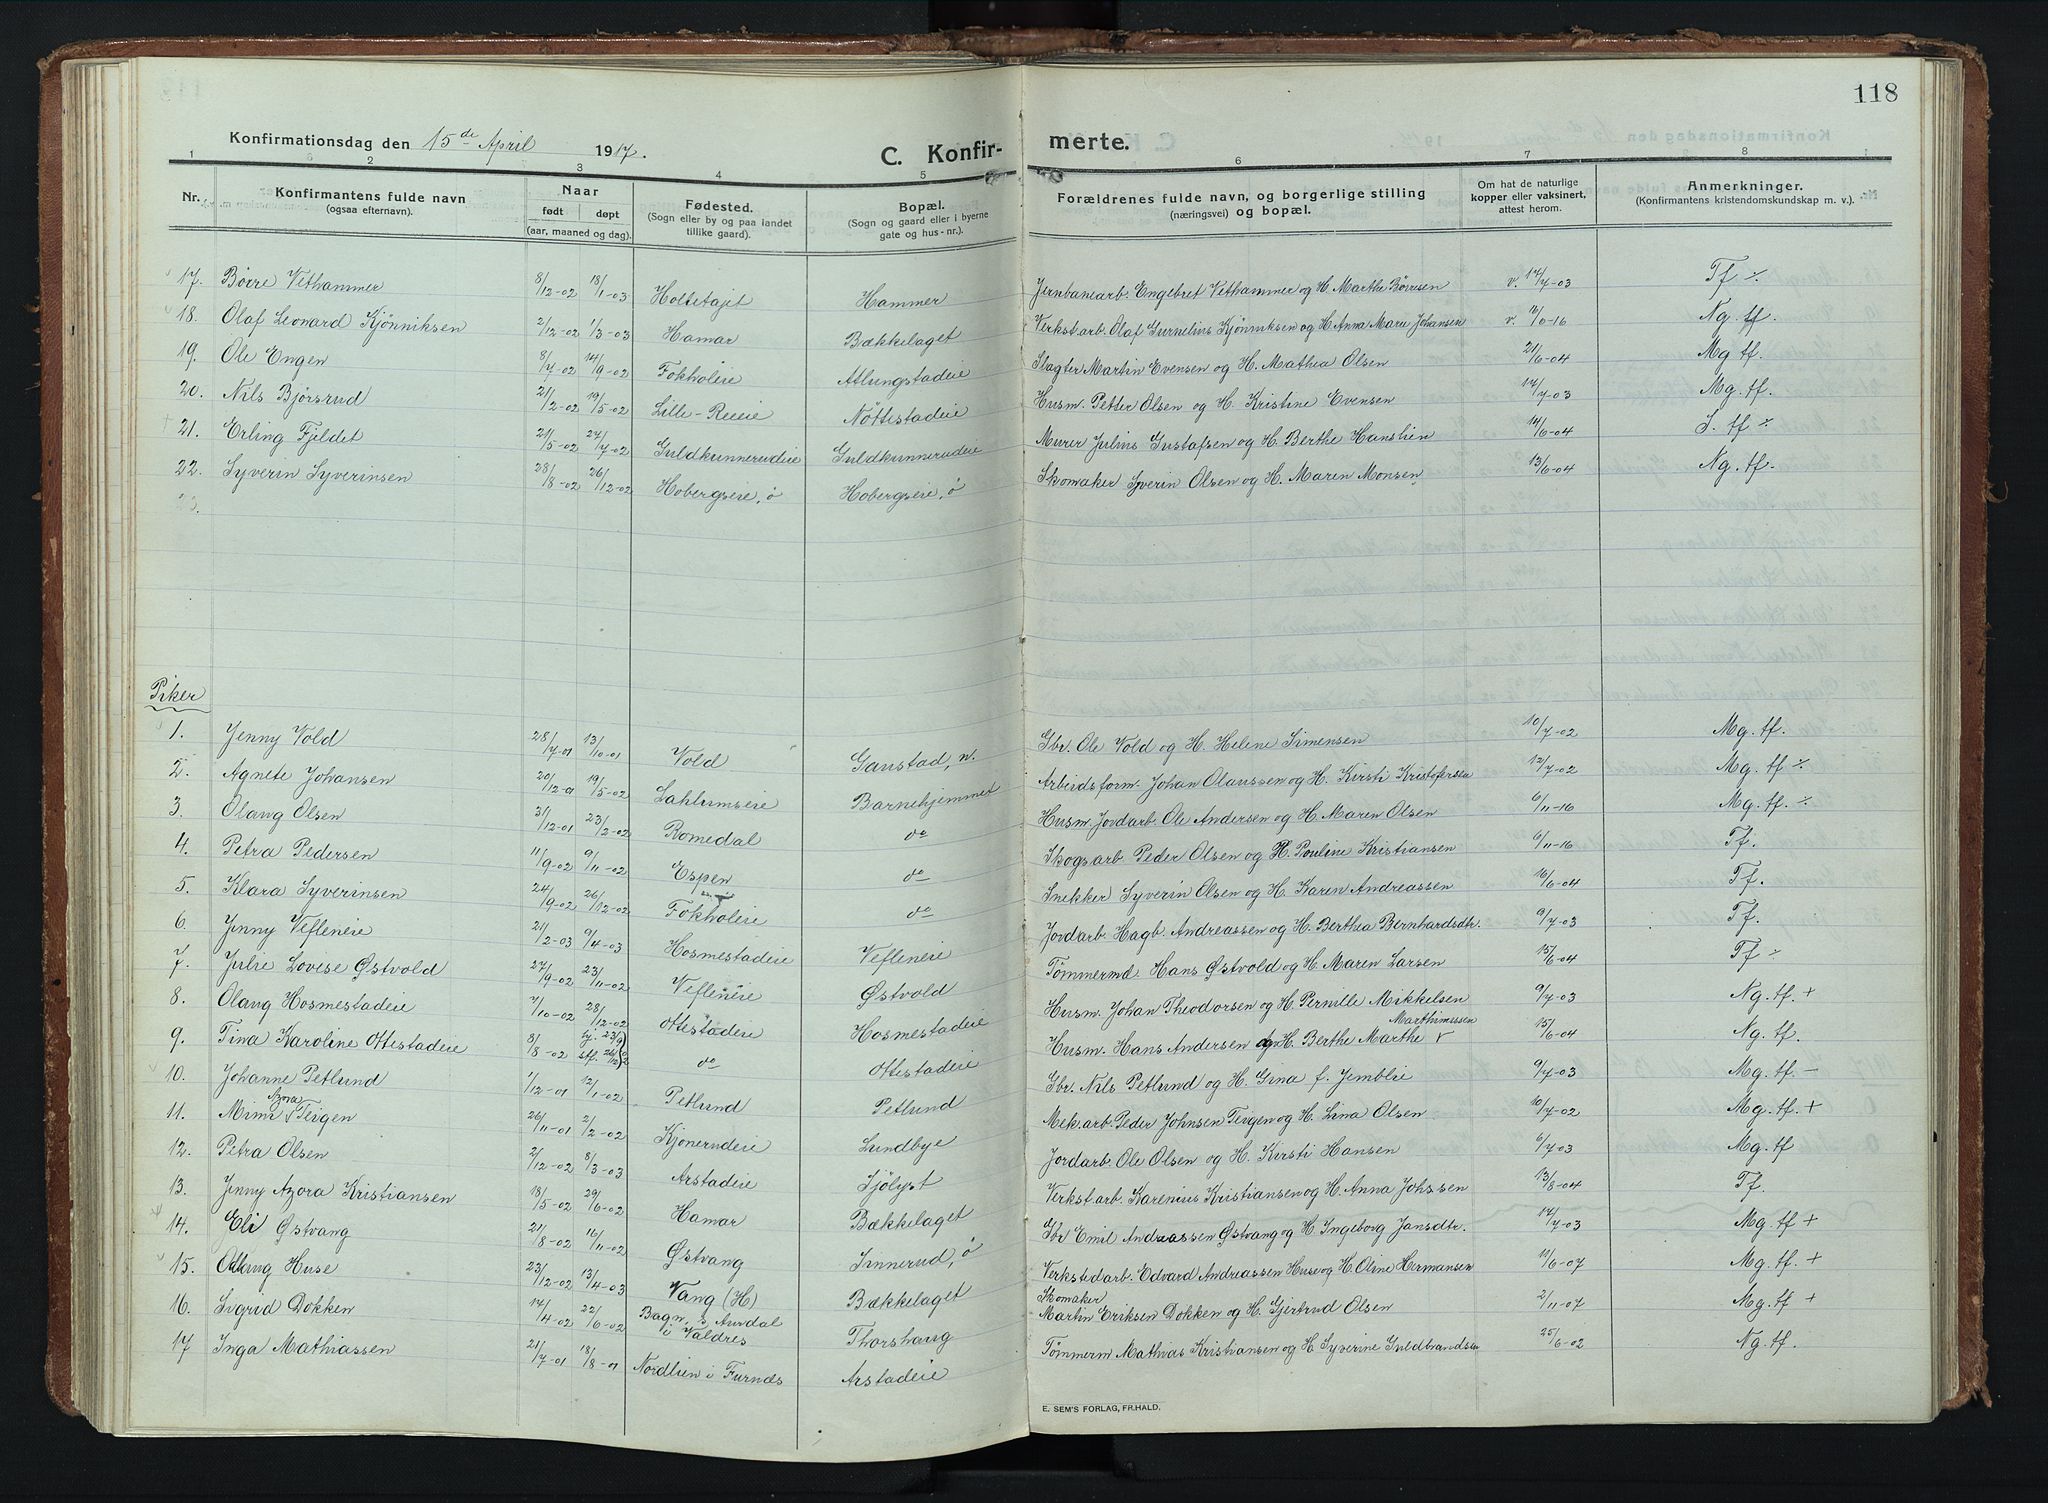 118
Konfirmationsdag den 15de April 1917.
C. Konfir-
merte.
1 2 3 4 5 6 7 8
Nr.
Konfirmantens fulde navn
(ogsaa efternavn).
Naar
født døpt
(aar, maaned og dag).
Fødested.
(Sogn eller by og paa landet
tillike gaard).
Bopæl.
(Sogn og gaard eller i byerne
gate og hus-nr.).
Forældrenes fulde navn, og borgerlige stilling
(næringsvei) og bopæl.
Om hat de naturlige
kopper eller vaksinert,
attest herom.
Anmerkninger.
(Konfirmantens kristendomskundskap m. v.).
17. Børre Vethammer 8/12-02 18/1-03 Holtetajet Hammer Jernbanearb. Engebret Vethammer og H. Marthe Børresen v. 14/7-03 Tf ÷
18. Olaf Leonard Kjønniksen 2/12-02 1/3-03 Hamar Bækkelaget Verkst.arb. Olaf Gurnelius Kjønniksen og H. Anna Marie Johansen v. Ng. tf.
19. Ole Engen 8/7-02 14/9-02 Fokholeie Atlungstadeie Slagter Martin Evensen og H. Mathea Olsen 21/6-04 Mg tf.
20. Nils Bjørsrud 21/2-02 19/5-02 Lille-Reeie Nøttestadeie Husm. Petter Olsen og H. Kristine Evensen 14/7-03 Mg. tf.
21. Erling Fjeldet 21/5-02 27/7-02 Guldkunnerudeie Guldkunnerudeie Murer Julius Gustafsen og H. Berthe Hanslien 14/6-04 S. tf ÷
22. Syverin Syverinsen 28/8-02 26/12-02 Hobergseie, ø Hobergseie, ø Skomaker Syverin Olsen og H. Maren Monsen 13/6-04 Ng. tf.
23.
Piker
1. Jenny Vold 28/7-01 13/10-01 Vold Gaustad, n. Gbr. Ole Vold og H. Helene Simensen 10/7-02 Mg. tf.
2. Agnete Johansen 20/12-01 19/5-02 Lahlumseie Barnehjemmet Arbeidsform. Johan Olaussen og H. Kirsti Kristofersen 12/7-02 Mg. tf ÷
3. Olaug Olsen 31/12-01 23/2-02 Romedal do Husm. Jordarb. Ole Andersen og H. Maren Olsen 6/11-16 Mg. tf. ÷
4. Petra Pedersen 11/9-02 9/11-02 Espen do Skogsarb. Peder Olsen og H. Pouline Kristiansen 6/11-16 Tf.
5. Klara Syverinsen 24/9-02 26/12-02 Fokholeie do Snekker Syverin Olsen og H. Karen Andreassen 16/6-04 Tf.
6. Jenny Vefleneie 21/2-03 9/4-03 Hosmestadeie Vefleneie Jordarb. Hagb. Andreassen og H. Berthea Bernhardsdtr. 9/7-03 Tf.
7. Julie Lovise Østvold 27/9-02 23/11-02 Vefleneie Østvold Tømmermd. Hans Østvold og H. Maren Larsen 15/6-04 Tf ÷
8. Olaug Hosmestadeie 7/10-02 28/12-02 Ottestadeie Hosmestadeie Husm. Johan Theodorsen og H. Pernille Mikkelsen 9/7-03 Ng. tf. +
Marthinussen
9. Tina Karoline Ottestadeie 8/8-02 hj. 23/9 stf. 26/12 02 do Ottestadeie Husm. Hans Andersen og H. Berthe Marthe 15/6-04 Ng. tf.
10. Johanne Petlund 1/12-01 12/1-02 Petlund Petlund Gbr. Nils Petlund og H. Gina f. Jemblie 9/7-03 Mg. tf. -
Azora
11. Mimi Teigen 26/11-01 2/2-02 Kjønerudeie Lundbye Mek.arb. Peder Johnsen Teigen og H. Lina Olsen 10/7-02 Mg. tf. +
12. Petra Olsen 2/12-02 8/3-03 Arstadeie Sjølyst Jordarb. Ole Olsen og H. Kirsti Hansen 6/7-03 Mg. tf
13. Jenny Azora Kristiansen 18/5-02 29/6-02 Hamar Bækkelaget Verkst.arb. Karenius Kristiansen og H. Anna Johssen 13/8-04 Tf.
14. Eli Østvang 21/8-02 16/11-02 Østvang Innerud, ø Gbr Emil Andreassen Østvang og H. Ingeborg Jansdtr. 14/7-03 Mg. tf +
15. Olaug Huse 23/12-02 13/4-03 Vang (H) Bækkelaget Verkstedarb. Edvard Andreassen Huse og H. Oline Hermansen 11/6-07 Mg. tf. +
Skomaker
16. Sigrud Dokken 14/4-02 22/6-02 Bagn, s Aurdal
i Valdres Thorshaug Martin Eriksen Dokken og H. Gjertrud Olsen 2/11-07 Mg. tf +
17 Inga Mathiassen 21/7-01 18/8-01 Nordlien i Furnds Arstadeie Tømmerm Mathias Kristiansen og H. Syverine Guldbrandsen 25/6-02 Ng. tf.
E. SEM'S FORLAG, FR.HALD.